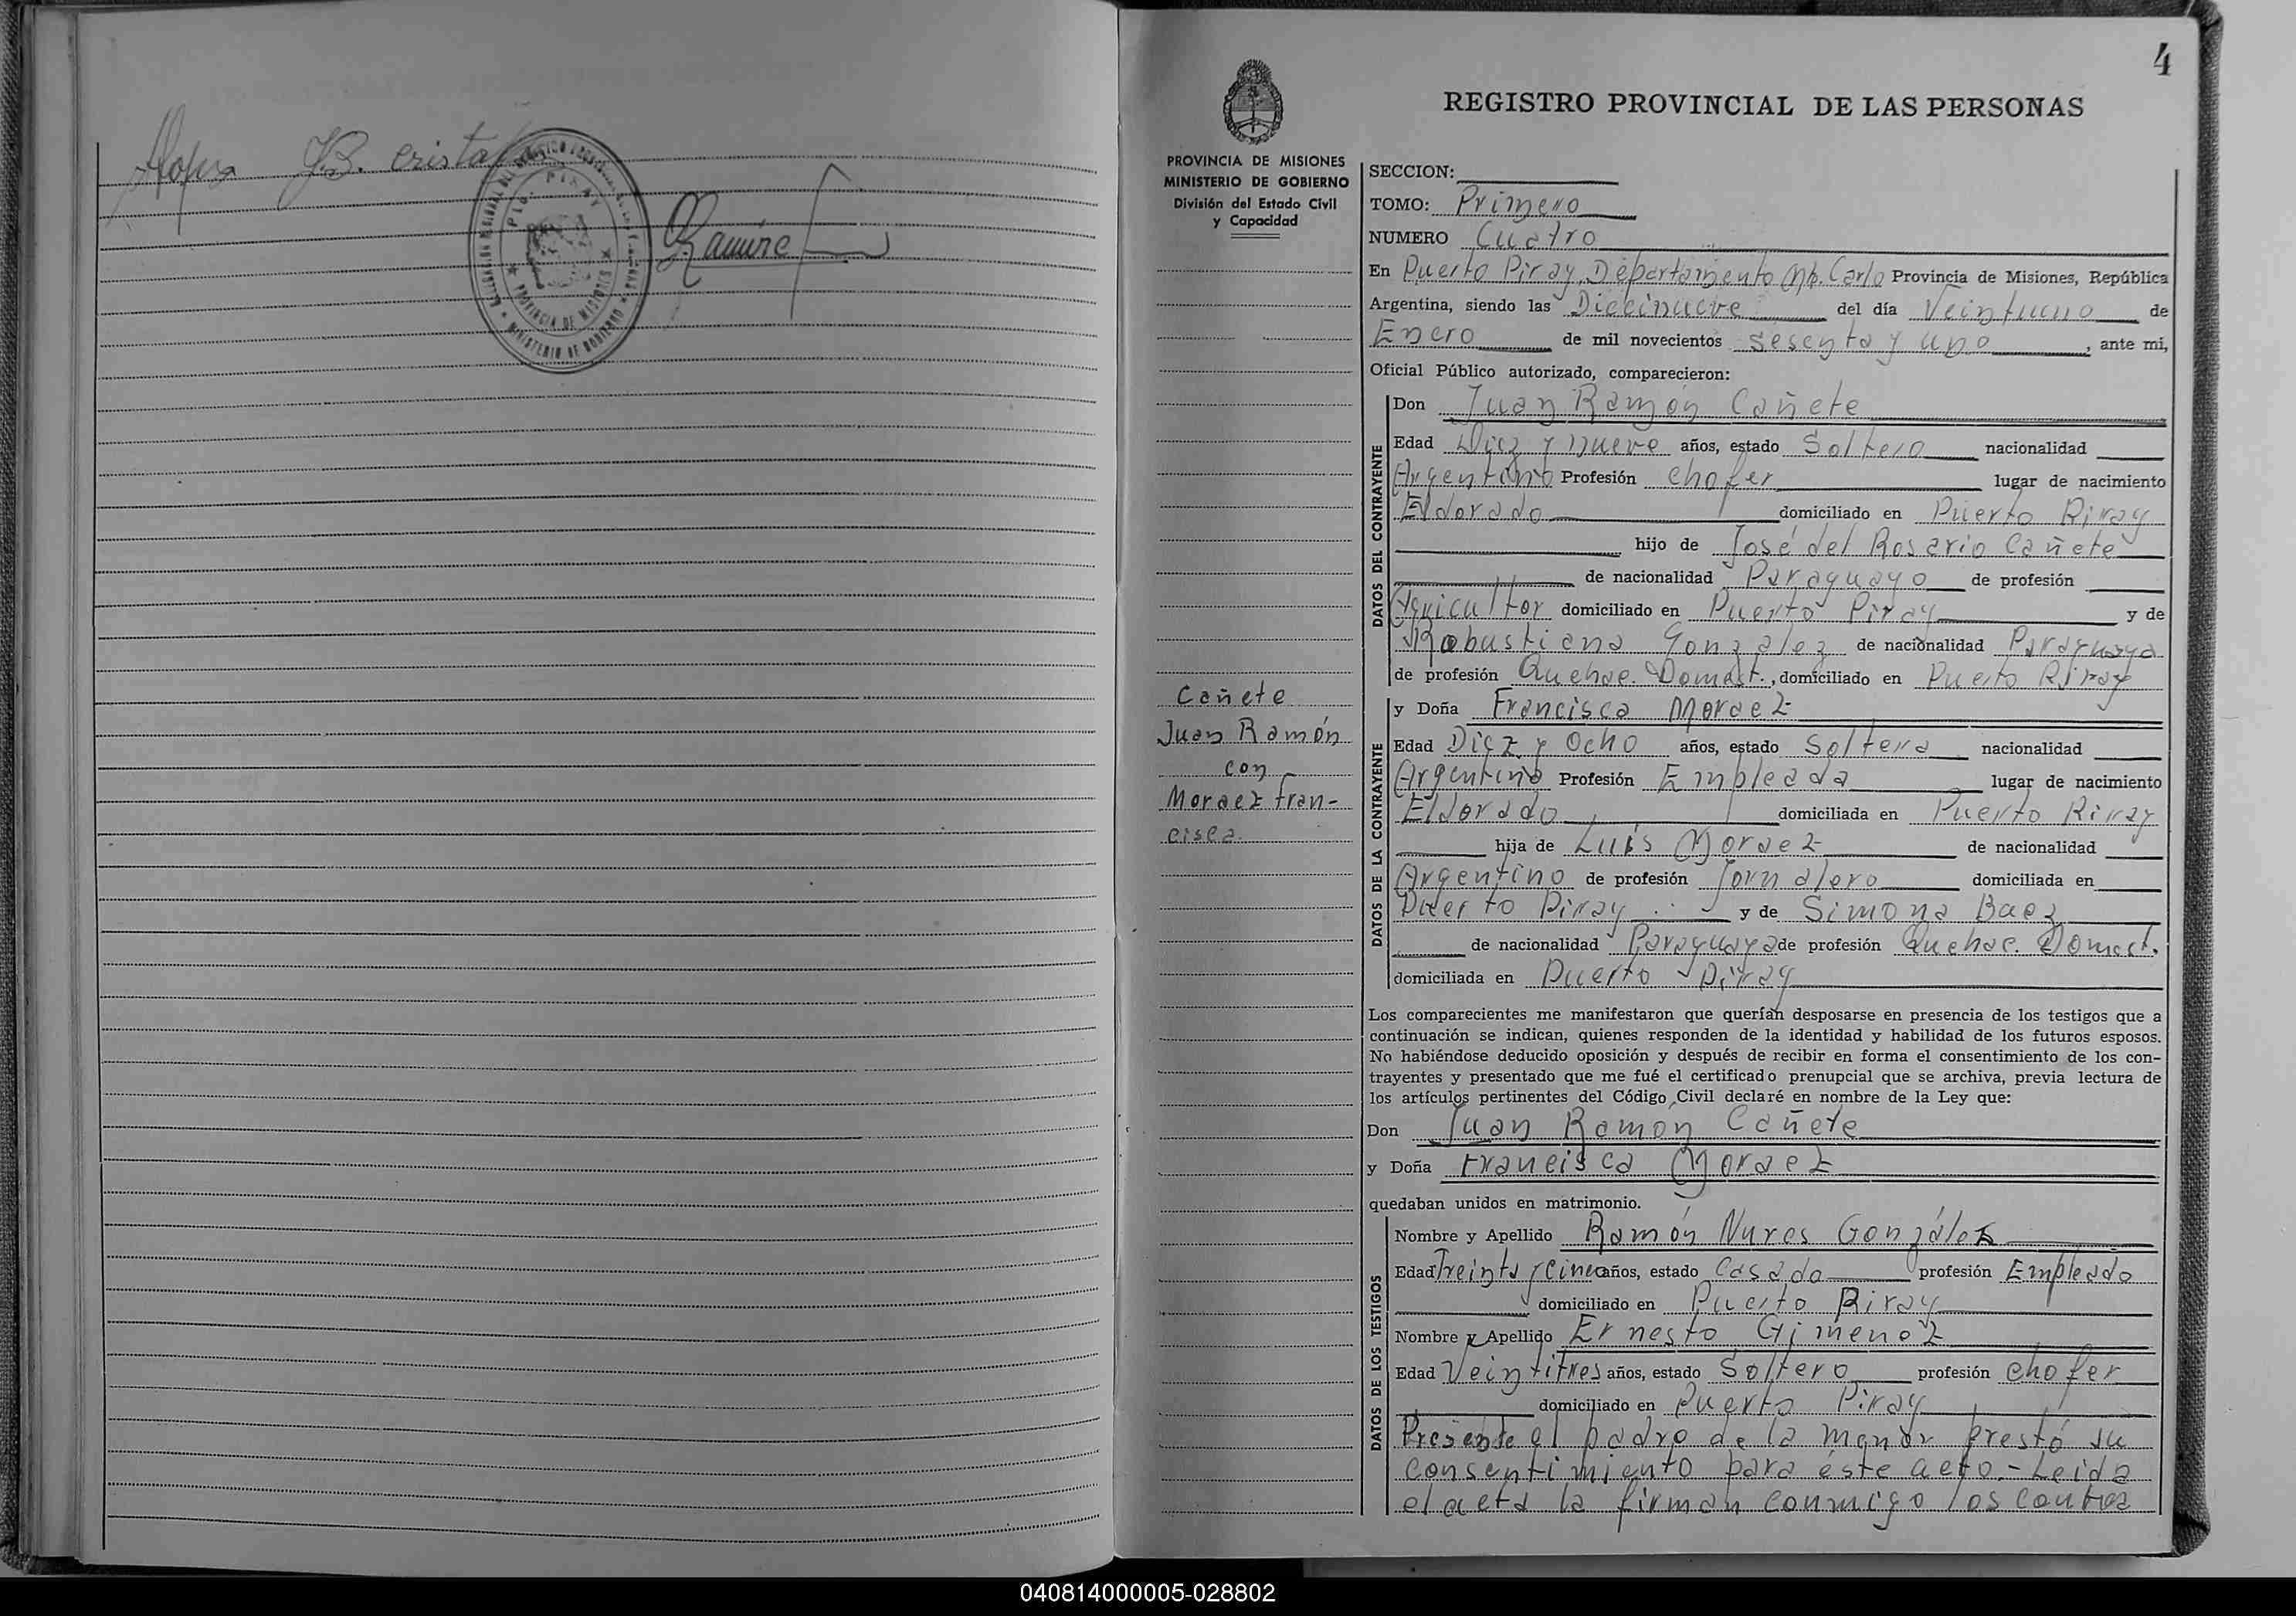 J.B. Crista
Ramirez
PROVINCIA DE MISIONES
MINISTERIO DE GOBIERNO
4
REGISTRO PROVINCIAL DE LAS PERSONAS
PROVINCIA DE MISIONES
MINISTERIO DE GOBIERNO
División del Estado Civil
y Capacidad
SECCION:
TOMO: Primero
NUMERO Cuatro
En Puerto Piray, Departamento Mb. Carlo Provincia de Misiones, República
Argentina, siendo las Diecinueve del día Veintiuno de
Enero de mil novecientos sesenta y uno, ante mi,
Oficial Público autorizado, comparecieron:
DATOS DEL CONTRAYENTE
Don Juan Ramón Cañete
Edad Diez y nueve años, estado Soltero nacionalidad
Argentino Profesión chofer lugar de nacimiento
Eldorado domiciliado en Puerto Piray
hijo de José del Rosario Cañete
de nacionalidad Paraguayo de profesión
Agricultor domiciliado en Puerto Piray y de
Robustiana Gonzalez de nacionalidad Paraguaya
de profesión Quehac. Domést., domiciliado en Puerto Piray
Cañete
Juan Ramón
con
Moraez Fran-
cisca.
DATOS DE LA CONTRAYENTE
y Doña Francisca Moraez
Edad Diez y Ocho años, estado Soltera nacionalidad
Argentina Profesión Empleada lugar de nacimiento
Eldorado domiciliada en Puerto Piray
hija de Luis Moraez de nacionalidad
Argentino de profesión Jornalero domiciliada en
Puerto Piray y de Simona Baez
de nacionalidad Paraguaya de profesión Quehac. Domest.
domiciliada en Puerto Piray
Los comparecientes me manifestaron que querían desposarse en presencia de los testigos que a
continuación se indican, quienes responden de la identidad y habilidad de los futuros esposos.
No habiéndose deducido oposición y después de recibir en forma el consentimiento de los con-
trayentes y presentado que me fué el certificado prenupcial que se archiva, previa lectura de
los artículos pertinentes del Código Civil declaré en nombre de la Ley que:
Don Juan Ramón Cañete
y Doña Francisca Moraez
quedaban unidos en matrimonio.
DATOS DE LOS TESTIGOS
Nombre y Apellido Ramón Nures González
Edad Treinta y cinco años, estado Casado profesión Empleado
domiciliado en Puerto Piray
Nombre y Apellido Ernesto Gimenez
Edad Veintitres años, estado Soltero profesión chofer
domiciliado en Puerto Piray
Presente el padre de la menor prestó su
consentimiento para éste acto.- Leida
el acta la firman conmigo los contra
040814000005-028802